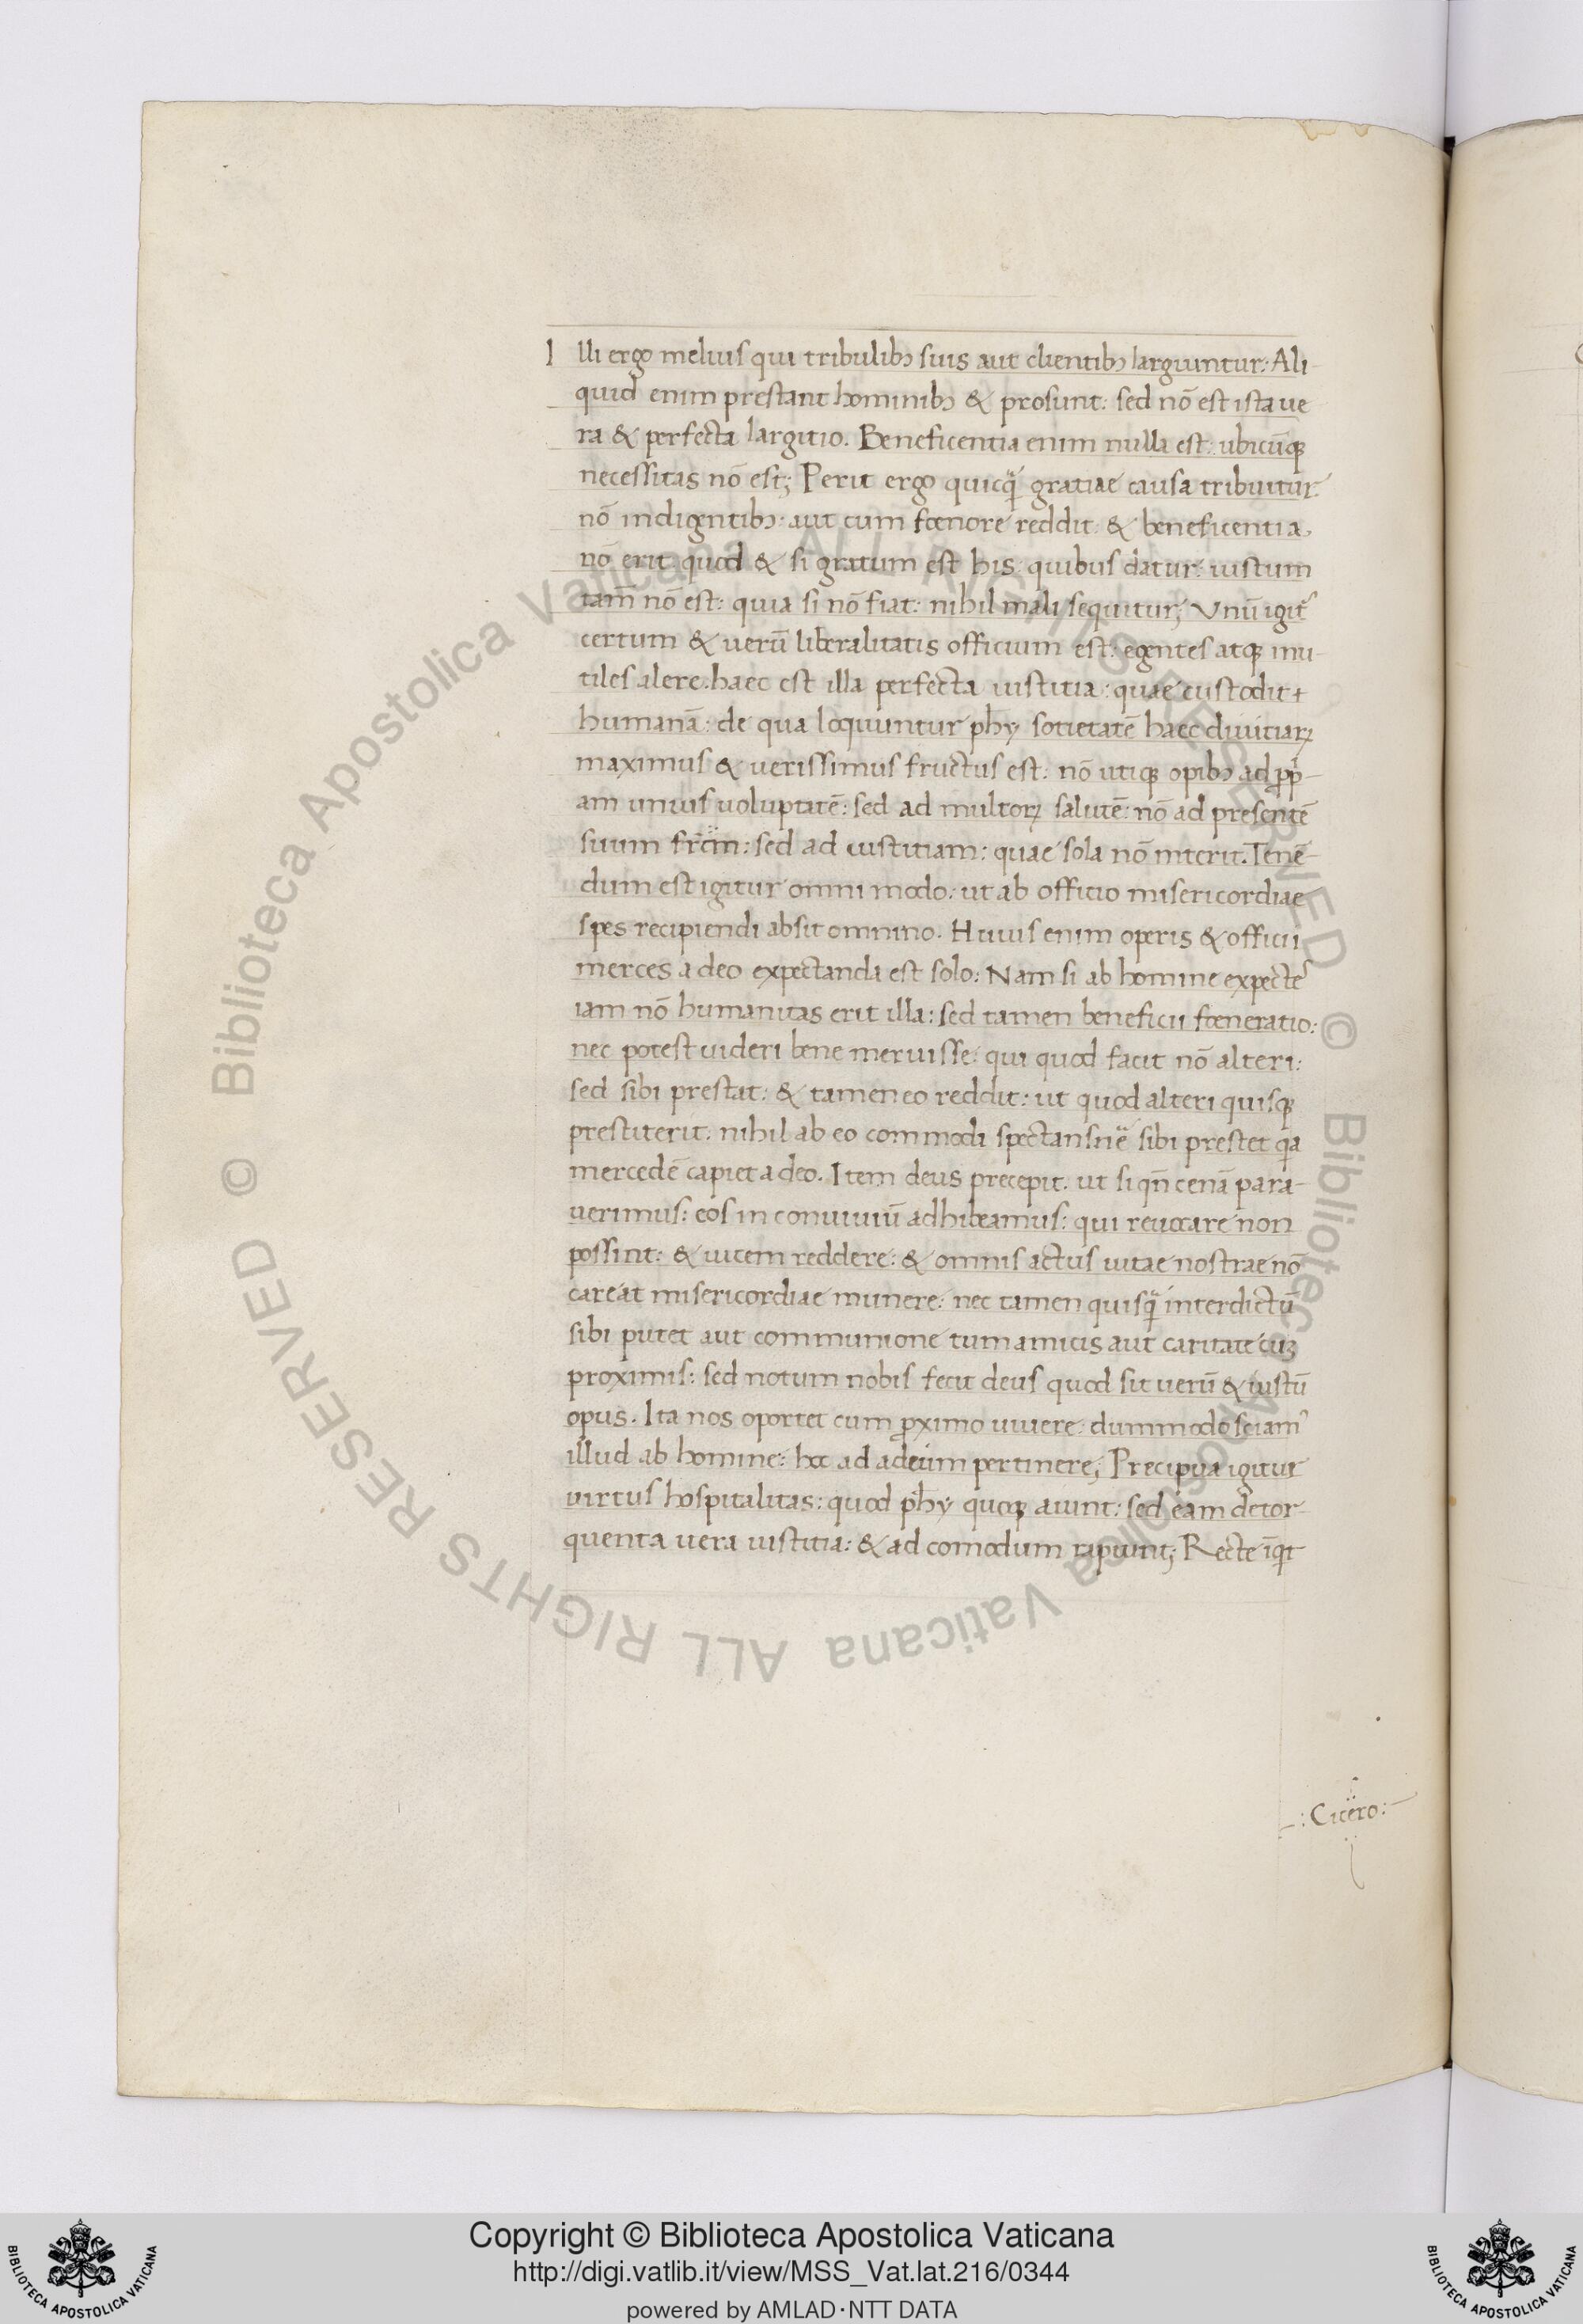 Illi ergo melius qui tribulibꝫ suis aut clientibꝫ largiuntur: Ali-
quid enim prestant hominibꝫ & prosunt: sed nō est ista ue
ra & perfecta largitio. Beneficentia enim nulla est: ubicūqꝫ
necessitas nō est; Perit ergo quicq̈ gratiae causa tribuitur
nō indigentibꝫ: aut cum foenore reddit: & beneficentia
nō erit quod & si gratum est his: quibus datur: iustum
tam̄ nō est: quia si nō fiat: nihil mali sequitur; Vnū igit᷑
certum & uerū liberalitatis officium est: egentes atqꝫ inu-
tiles alere. haec est illa perfecta iustitia: quae custodit +
humanā: de qua loquuntur phy sotietatē haec diuitiaꝝ
maximus & uerissimus fructus est: nō utiqꝫ opibꝫ ad ꝓp̄-
am unius uoluptatē: sed ad multoꝝ salutē: nō ad presentē
suum fr̄cm: sed ad iustitiam: quae sola nō interit. Tenē-
dum est igitur omni modo: ut ab officio misericordiae
spes recipiendi absit omnino. Huius enim operis & officii
merces a deo expectanda est solo: Nam si ab homine expecte᷑
iam nō humanitas erit illa: sed tamen beneficii foeneratio:
nec potest uideri bene meruisse: qui quod facit nō alteri:
sed sibi prestat: & tamen eo reddit: ut quod alteri quisqꝫ
prestiterit: nihil ab eo commodi spectans nē sibi prestet q̄a
mercedē capiet a deo. Item deus precepit. ut si qn̄ cenā para-
uerimus: eos in conuiuiū adhibeamus: qui reuocare non
possint: & uicem reddere: & omnis actus uitae nostrae nō
careat misericordiae munere: nec tamen quisq̈ interdictū
sibi putet aut communione tum amicis aut caritate cuꝫ
proximis: sed notum nobis fecit deus quod sit uerū & iustū
opus. Ita nos oportet cum ꝓximo uiuere: dummodo sciam᷒
illud ab homine: hoc ad adeum pertinere; Precipua igitur
uirtus hospitalitas: quod phy quoqꝫ aiunt: sed eam detor-
quent a uera iustitia: & ad comodum rapiunt; Recte īqt
-: Cicero:-
Copyright © Biblioteca Apostolica Vaticana
http://digi.vatlib.it/view/MSS_Vat.lat.216/0344
powered by AMLAD·NTT DATA
BIBLIOTECA APOSTOLICA VATICANA
BIBLIOTECA APOSTOLICA VATICANA
© Biblioteca Apostolica Vaticana ALL RIGHTS RESERVED © Biblioteca Apostolica Vaticana ALL RIGHTS RESERVED